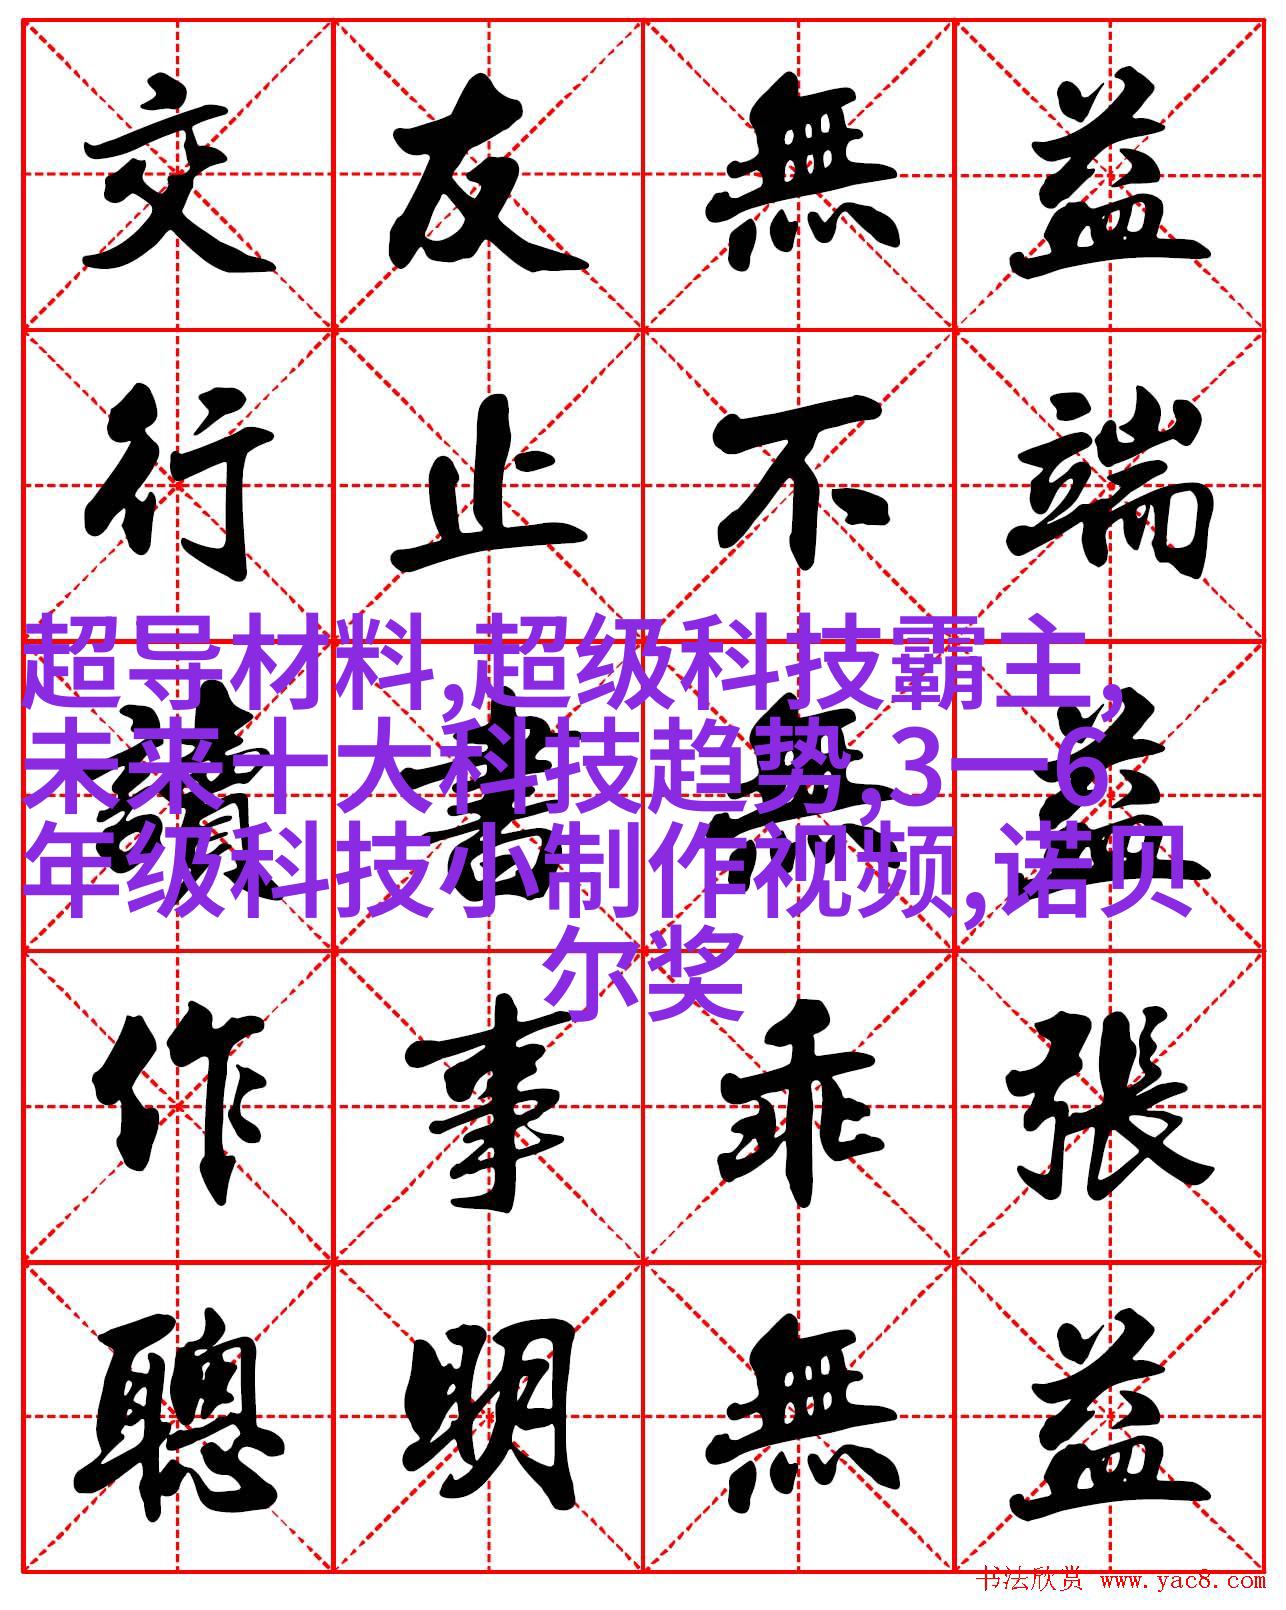 交友無益
行止不端
讀書無益
作事乖張
聰明無益
超导材料,超级科技霸主,
未来十大科技趋势,3一6
年级科技小制作视频,诺贝
尔奖
书法欣赏 www.yac8.com